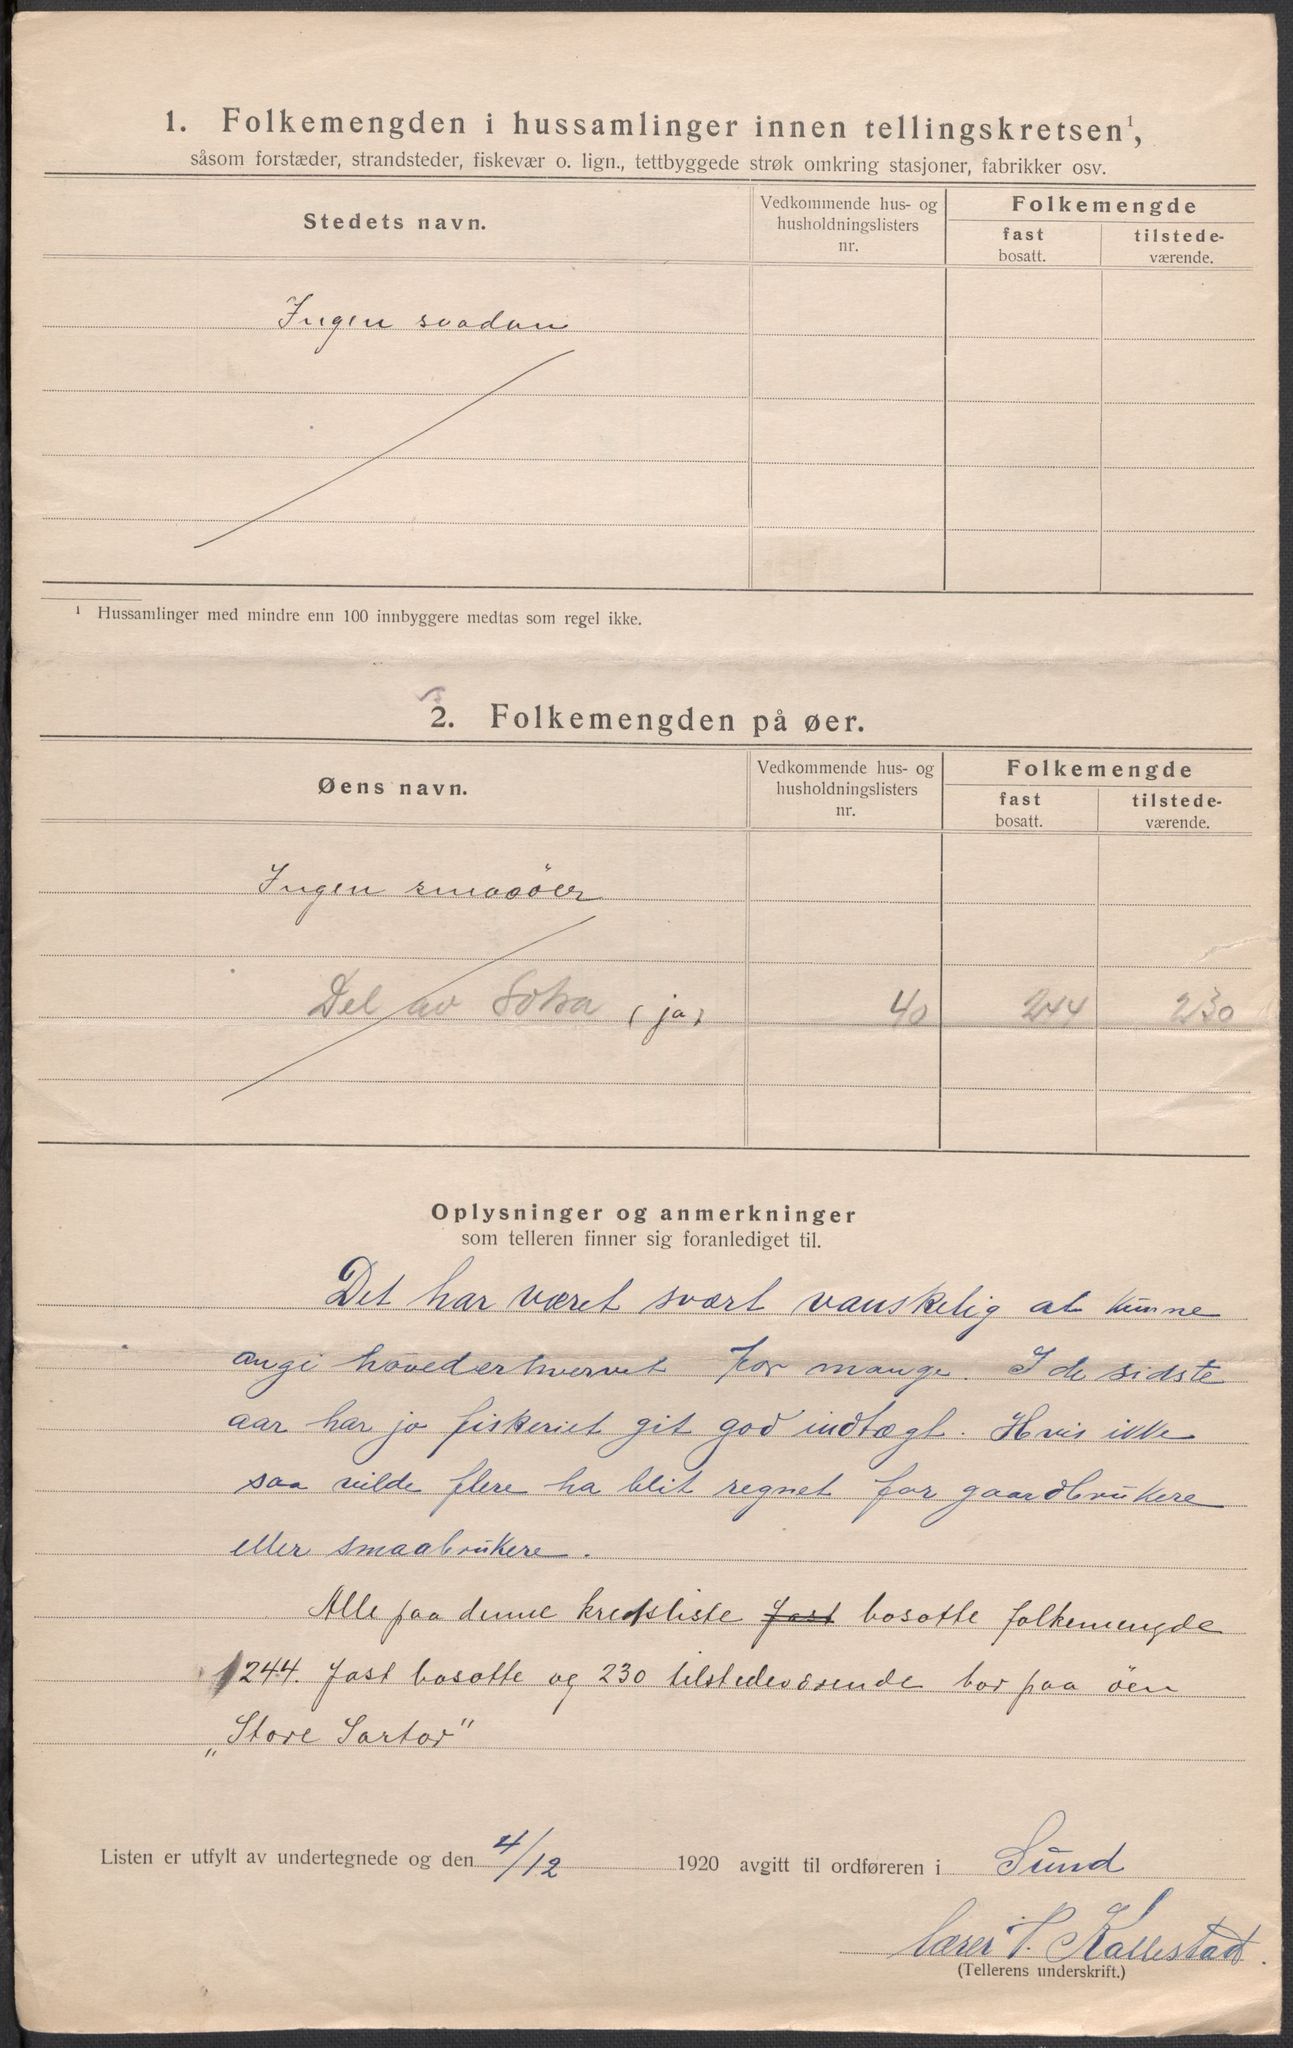 1. Folkemengden i hussamlinger innen tellingskretsen¹,
såsom forstæder, strandsteder, fiskevær o. lign., tettbyggede strøk omkring stasjoner, fabrikker osv.
Stedets navn.
Vedkommende hus- og
husholdningslisters
nr.
Folkemengde
fast
bosatt.
tilstede-
værende.
Ingen saadan
¹ Hussamlinger med mindre enn 100 innbyggere medtas som regel ikke.
2. Folkemengden på øer.
Øens navn.
Vedkommende hus- og
husholdningslisters
nr.
Folkemengde
fast
bosatt.
tilstede-
værende.
Ingen smaaöer
Del av Sotra (ja) 40 244 230
Oplysninger og anmerkninger
som telleren finner sig foranlediget til.
Det har været svært vanskelig at kunne
angi hovederhvervet for mange. I de sidste
aar har jo fiskeriet git god indtægt. Hvis ikke
saa vilde flere ha blit regnet for gaardbrukere
eller smaabrukere.
Alle paa denne kredsliste fast bosatte folkemengde
244. fast bosatte og 230 tilstedeværende bor paa öen
„Store Sartor"
Listen er utfylt av undertegnede og den 4/12 1920 avgitt til ordføreren i Sund
lærer P. Kallestad.
(Tellerens underskrift.)